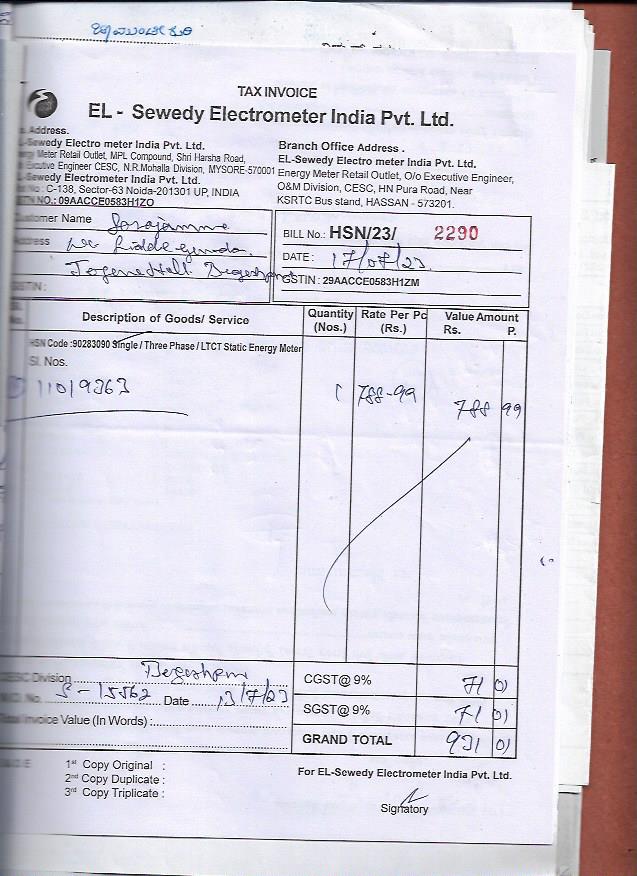 TAX INVOICE
EL - Sewedy Electrometer India Pvt. Ltd.
Address.
-Sewedy Electro meter India Pvt. Ltd.
Meter Retail Outlet, MPL Compound, Shri Harsha Road,
Engineer CESC, N.R.Mohalla Division, MYSORE-570001
Sewedy Electrometer India Pvt. Ltd.
No : C-138, Sector-63 Noida-201301 UP, INDIA
NO.: 09AACCE0583H1ZO
Branch Office Address .
EL-Sewedy Electro meter India Pvt. Ltd.
Energy Meter Retail Outlet, O/o Executive Engineer,
O&M Division, CESC, HN Pura Road, Near
KSRTC Bus stand, HASSAN - 573201.
Customer Name Sarojamma
BILL No.: HSN/23/ 2290
DATE : 17/07/23
GSTIN : 29AACCE0583H1ZM
Description of Goods/ Service Quantity (Nos.) Rate Per Pc (Rs.) Value Amount Rs. P.
HSN Code :90283090 Single / Three Phase / LTCT Static Energy Meter
Sl. Nos.
11019363 1 788-99 788 99
CESC Division
S-15562 Date 13/7/23
Total Invoice Value (In Words) :
CGST@ 9% 71 01
SGST@ 9% 71 01
GRAND TOTAL 931 01
1st Copy Original :
2nd Copy Duplicate :
3rd Copy Triplicate :
For EL-Sewedy Electrometer India Pvt. Ltd.
Signatory